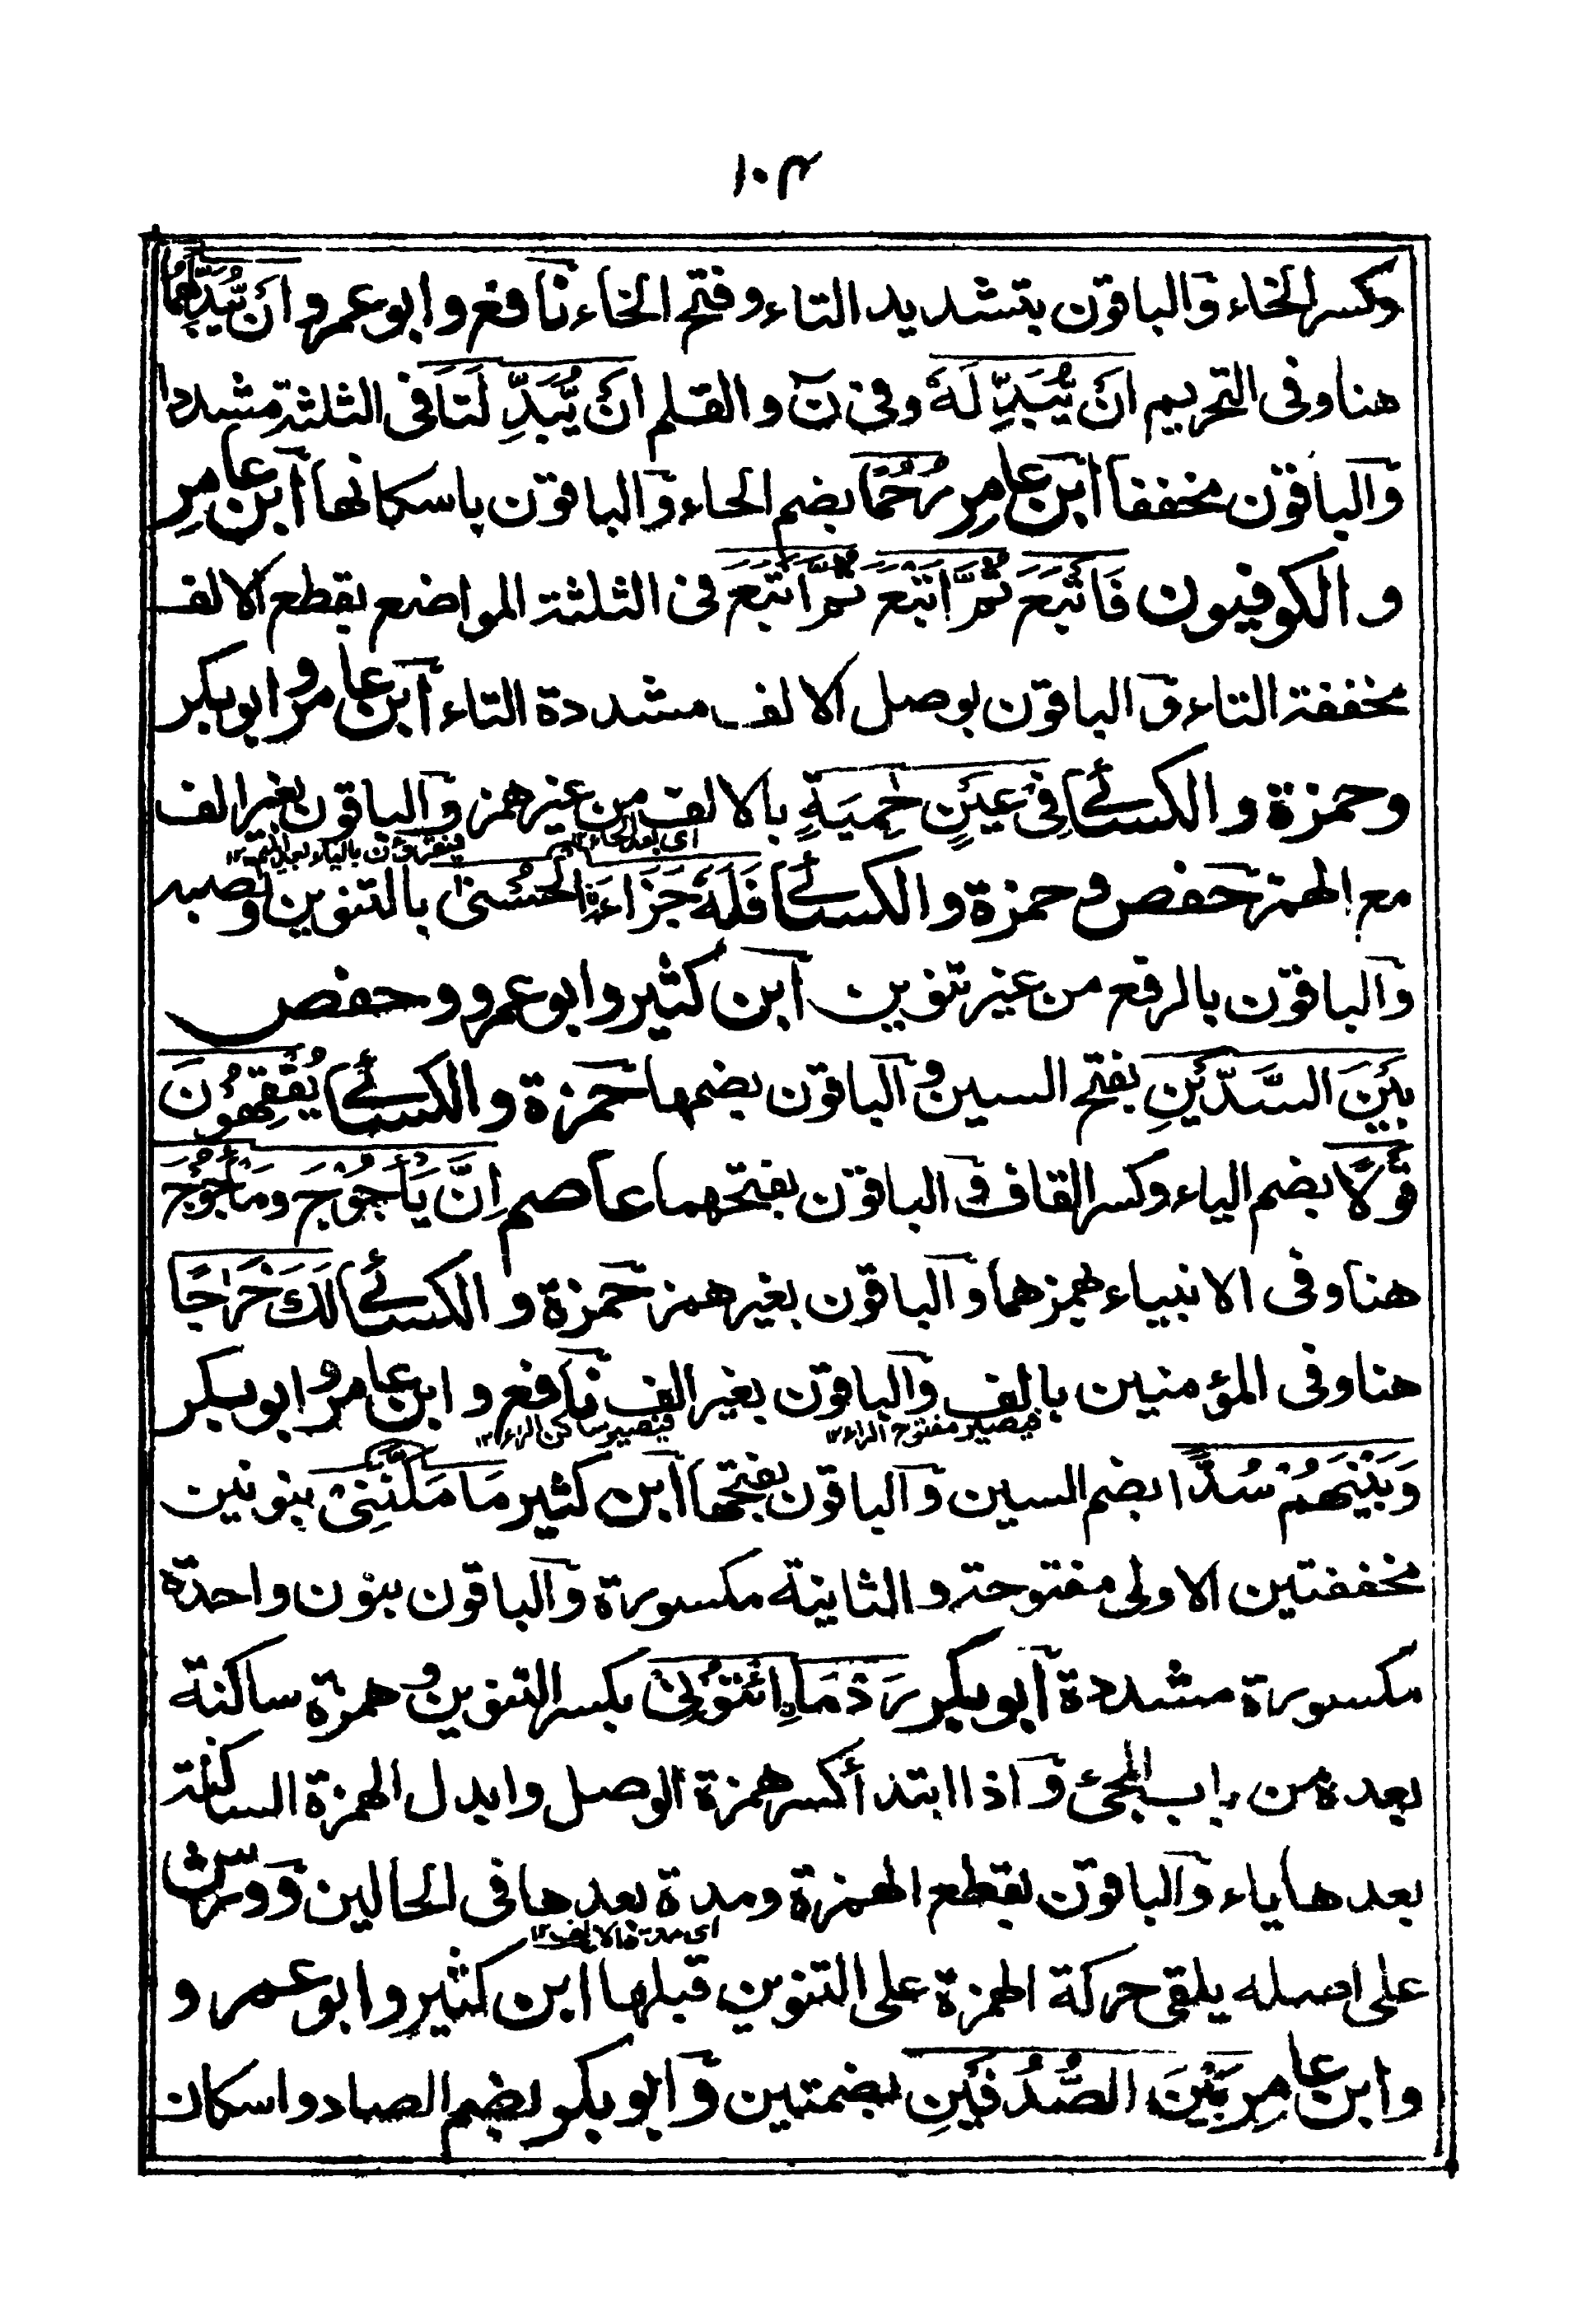 ١٠٣
وكسر الخاء والباقون بتشديد التاء وفتح الخاء نافع وابو عمرو ان يُّبَدِّلَهُمَا
هنا وفى التحريم اَنْ يُّبَدِّلَهٗ وفى نٓ والقلم اَنْ يُّبَدِّلَنَا فى الثلثة مشددا
والباقون مخففا ابن عامر رُحُمًا بضم الحاء والباقون باسكانها ابن عامِر
والكوفيون فَاَتْبَعَ ثُمَّ اَتْبَعَ ثُمَّ اَتْبَعَ فى الثلثة المواضع بقطع الالف
مخففة التاء والباقون بوصل الالف مشددة التاء ابن عامر وابوبكر
وحمزة والكسائى فِىْ عَيْنٍ حٰمِيَةٍ بالالف من غير همز والباقون بغير الف
اى بعد الحاء ١٢ فيقرؤن بالياء بعد الميم ١٢
مع الهمزة حفص وحمزة والكسائى فَلَهٗ جَزَاءَنِ الْحُسْنٰى بالتنوين ونصبه
والباقون بالرفع من غير تنوين ابن كثير وابو عمرو وحفص
بَيْنَ السَّدَّيْنِ بفتح السين والباقون بضمها حمزة والكسائى يُفْقِهُوْنَ
قَوْلًا بضم الياء وكسر القاف والباقون بفتحهما عاصم اِنَّ يَأْجُوْجَ وَمَأْجُوْجَ
هنا وفى الانبياء بهمزهما والباقون بغير همز حمزة والكسائى لَكَ خَرَاجًا
هنا وفى المؤمنين بالف والباقون بغير الف نافع وابن عامر وابوبكر
فيصير مفتوح الراء ١٢ فيصير ساكن الراء ١٢
وَبَيْنَهُمْ سُدًّا بضم السين والباقون بفتحها ابن كثير مَا مَكَّنَنِىْ بنونين
مخففتين الاولى مفتوحة والثانية مكسورة والباقون بنون واحدة
مكسورة مشددة ابوبكر رَدْمَاِ ائْتُوْنِىْ بكسر التنوين وهمزة ساكنة
بعده من باب المجئ واذا ابتدأ كسر همزة الوصل وابدل الهمزة الساكنة
بعدها ياء والباقون بقطع الهمزة ومدة بعدها فى الحالين وورش
اى مدة الالف ١٢
على اصله يلقى حركة الهمزة على التنوين قبلها ابن كثير وابو عمرو
وابن عامر بَيْنَ الصُّدُفَيْنِ بضمتين وابو بكر بضم الصاد واسكان